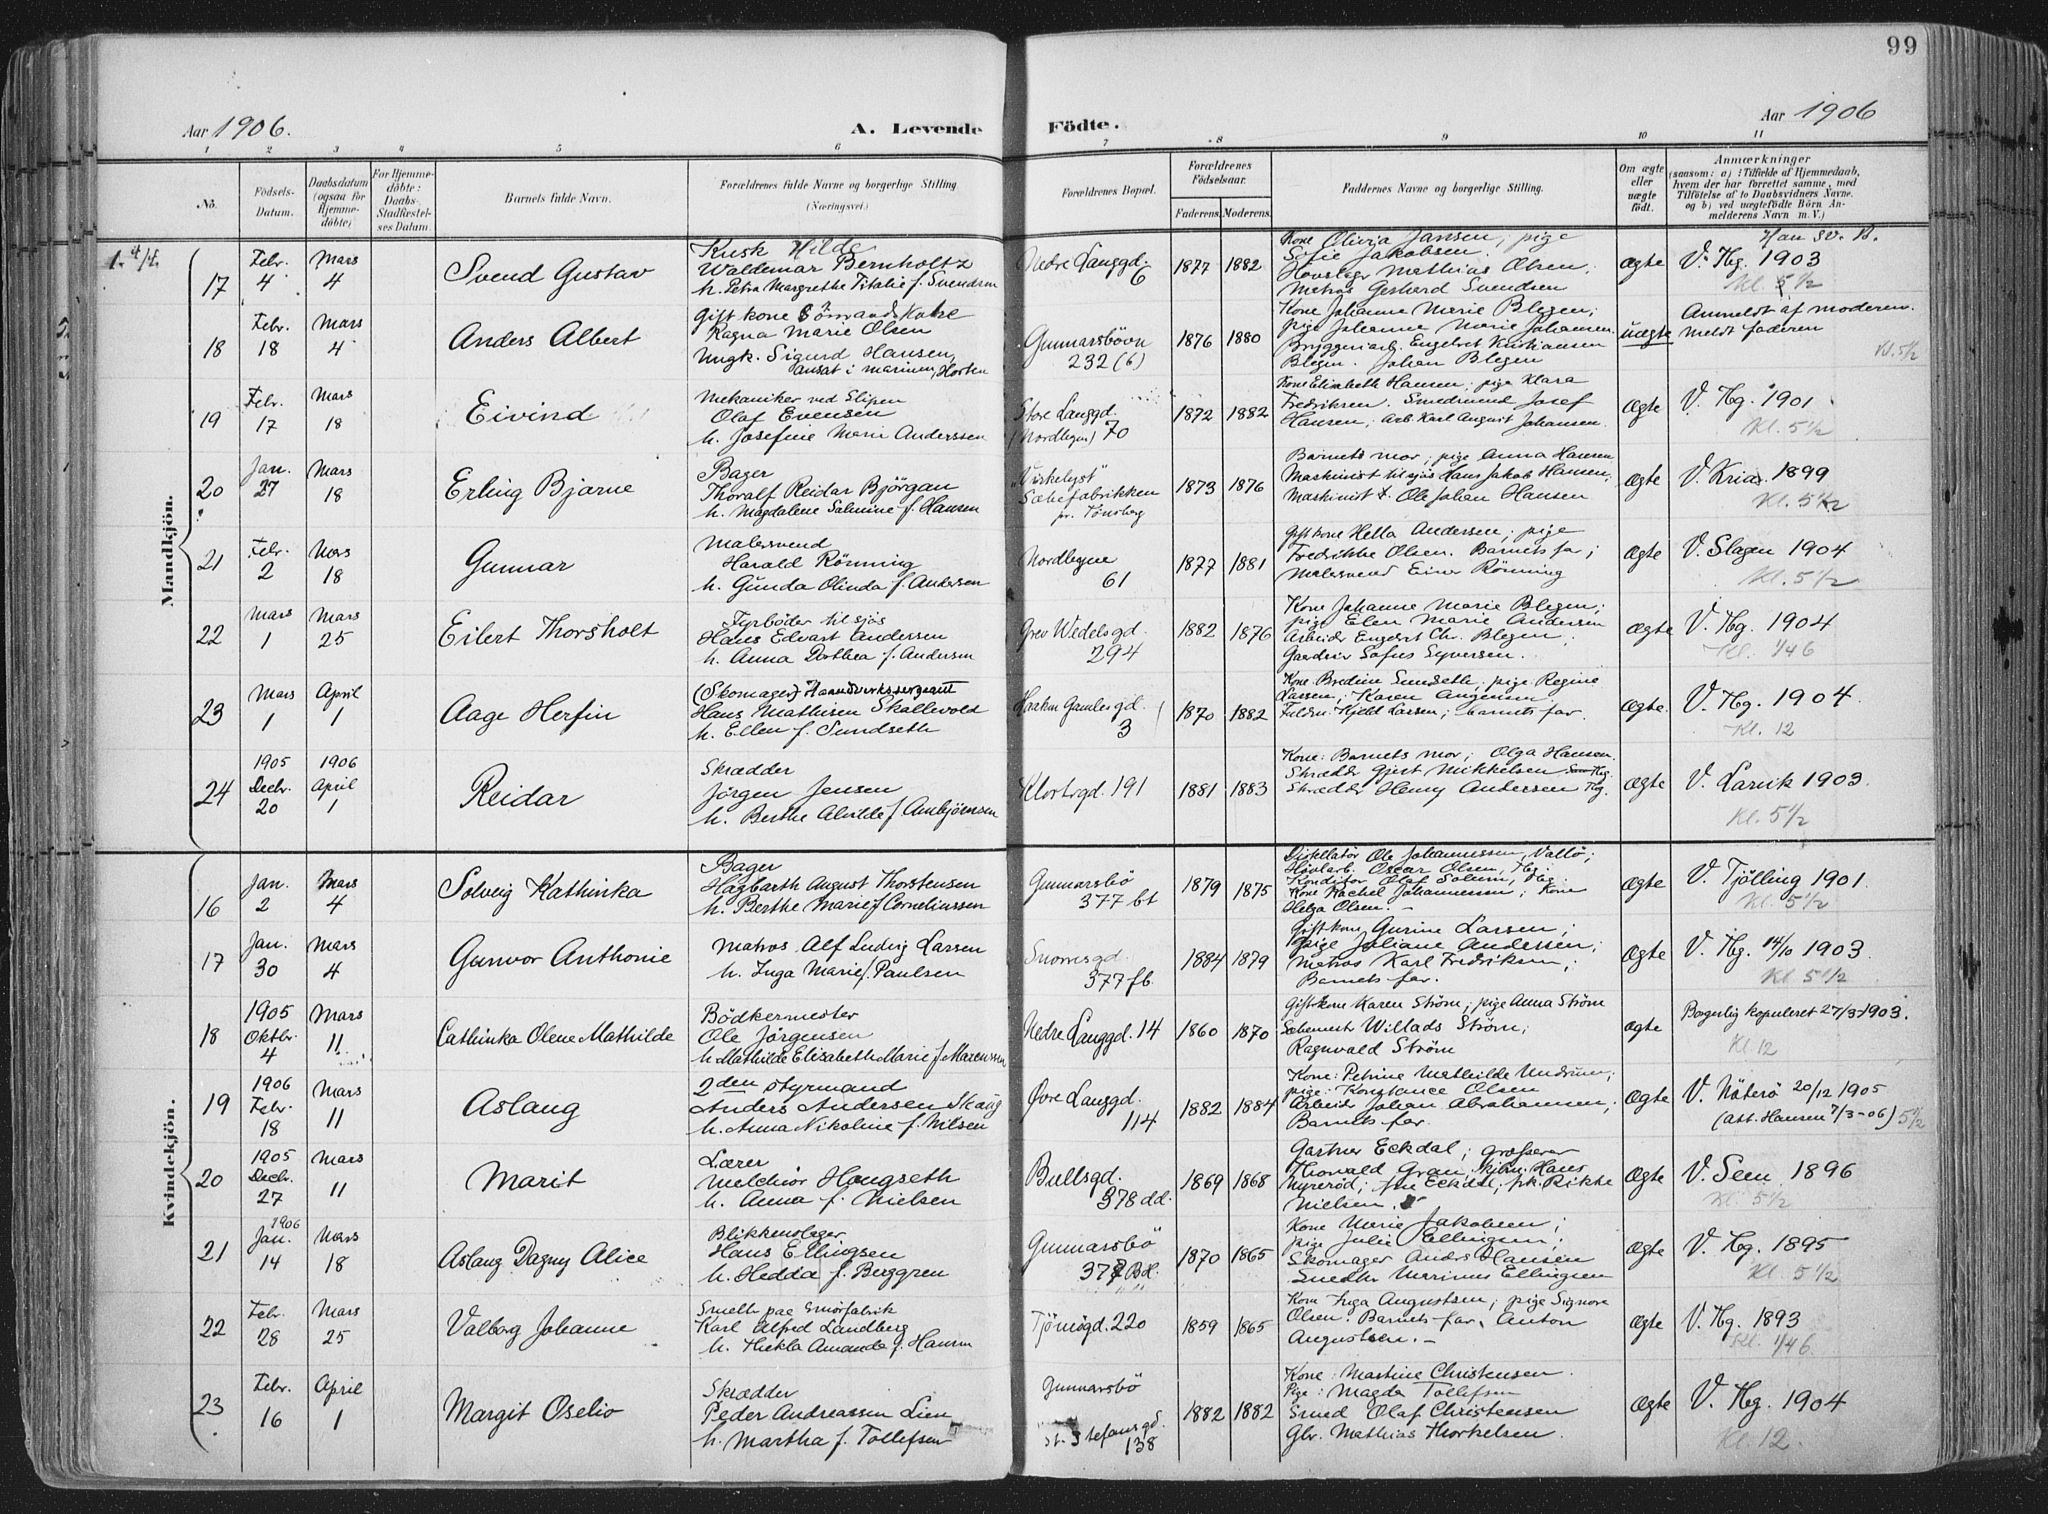 99
Aar 1906.
A. Levende
Födte.
Aar 1906
1 2 3 4 5 6 7 8 9 10 11
No.
Födsels-
Datum.
Daabsdatum
(ogsaa for
Hjemme-
döbte)
For Hjemme-
döbte:
Daabs-
Stadfæstel-
ses Datum.
Barnets fulde Navn.
Forældrenes fulde Navne og borgerlige Stilling
(Næringsvei.)
Forældrenes Bopæl.
Forældrenes
Födselsaar.
Faderens.
Moderens.
Faddernes Navne og borgerlige Stilling.
Om ægte
eller
uægte
født.
Anmærkninger
(saasom: a) i Tilfælde af Hjemmedaab,
hvem der har forrettet samme, med
Tilføielse af to Daabsvidners Navne.
og b) ved uægtefödte Börn An-
melderens Navn m. V.)
Mandkjön.
1. 4/4.
17
Febr. 4
Mars 4
Svend Gustav
Kusk Hilda
Waldemar Bernholtz
h. Petra Margrethe Titalie f. Svendsen
Nedre Langgd.
6
1877
1882
Kone Olivia Jansen; pige
Sofie Jakobsen.
Hovslager Mathias Olsen;
Matros Gerhard Svendsen
ægte
V. Tbg. 1903
Kl. 5 1/2
18
Febr. 18
Mars 4
Anders Albert
Gift kone
Ragna Marie Olsen
Ungk. Sigurd Hansen,
ansat i marinen, Horten
Gunnarsbövn
232 (6)
1876
1880
Kone Johanne Marie Blegen;
pige Johanne Marie Johansen.
Bryggeriarb. Engebret Kristiansen
Blegen. Johan Blegen
uægte
Anmeldt af moderen.
meldt faderen
Kl. 5 1/2
19
Febr. 17
Mars 18
Eivind
Mekaniker ved Slipen
Olaf Evensen
h. Josefine Marie Anderssen
Store Langgd.
(Nordbyen) 70
1872
1882
Kone Elisabeth Hansen; pige Klara
Fredriksen. Smedsvend Josef
Hansen; Arb. Karl August Johansen.
Ægte
V. Tbg. 1901
Kl. 5 1/2
20
Jan. 27
Mars 18
Erling Bjarne
Bager
Thoralf Reidar Björgan
h. Magdalene Salmine f. Hansen
"Virkelyst"
Sæbefabrikken
pr. Tönsberg
1873
1876
Barnets mor; pige Anna Hansen
Maskinist tilsjös Hans Jakob Hansen;
Maskinist Ole Johan Hansen
Ægte
V. Kria. 1899
Kl. 5 1/2
21
Febr. 2
Mars 18
Gunnar
Malersvend
Harald Rönning
h. Gunda Olinda f. Andersen
Nordbyene
61
1877
1881
Gift kone Hella Andersen; pige
Fredrikke Olsen. Barnets far;
Malersvend Einar Rönning
Ægte
V. Slagen 1904
Kl. 5 1/2
22
Mars 1
Mars 25
Eilert Thorsholt
Fyrböder tilsjös
Hans Edvart Andersen
h. Anna Dorthea f. Andersen
Grev Wedelsgd.
294
1882
1876
Kone Johanne Marie Blegen;
pige Elen Marie Andersen
Arbeider Engebret Chr. Blegen;
Gaardeier Sofus Syversen.
Ægte
V. Tbg. 1904
Kl. 1/46
23
Mars 1
April 1
Aage Herfin
(Skomager) Haandverkssergeant
Hans Mathisen Skallevold
h. Ellen f. Sundseth
Haakon Gamlesgd.
3
1870
1882
Kone Bredine Sundseth; pige Regine
Larsen; Karen Augensen
Kjeld Larsen; Barnets far.
Ægte.
V. Tbg. 1904.
Kl. 12
24
1905
Decbr. 20
1906
April 1
Reidar
Skrædder
Jörgen Jensen
h. Berthe Alvilde f. Anbjörnsen
Klostergd. 191
1881
1883
Kone: Barnets mor; Olga Hansen.
Skrædder Gjert Mikkelsen
Skrædder Henry Andersen Tbg.
Ægte
V. Larvik 1903.
Kl. 5 1/2
Kvindekjön.
16
Jan. 2
Mars 4
Solveig Kathinka
Bager
Hagbarth August Thorstensen
h. Berthe Marie f. Corneliussen
Gunnarsbö
377 bt
1879
1875
Distellatör Ole Johannessen, Vallö;
Hövlarb. Oscar Olsen, Tbg.
Konditor Olaf Solum, Tbg.
Kone Rachel Johannessen; Kone
Helga Olsen. —
Ægte
V. Tjölling 1901.
Kl. 5 1/2
17
Jan. 30
Mars 4
Gunvor Anthonie
Matros Alf Ludvig Larsen
h. Inga Marie f. Paulsen
Snorresgd.
377 fb.
1884
1879
Gift kone Gurine Larsen;
pige Juliane Anderssen;
Matros Karl Fredriksen;
Barnets far.
Ægte
V. Tbg. 14/10 1903.
Kl. 5 1/2
18
1905
Oktbr. 4
Mars 11
Cathinka Olene Mathilde
Bödkermester
Ole Jörgensen
h. Mathilde Elizabeth Marie f. Marenssen
Nedre Langgd. 14
1860
1870
Gift kone Karen Ström; pige Anna Ström
Willads Ström;
Ragnvald Ström
ægte
Borgerlig kopuleret 27/3 1903.
Kl. 12
19
1906
Febr. 18
Mars 11
Aslaug
2den Styrmand
Anders Andersen Skaug
h. Anna Nikoline f. Nilsen
Övre Langgd.
114
1882
1884
Kone: Petrine Mathilde Undrum;
pige: Konstance Olsen
Arbeider Johan Abrahamsen;
Barnets far.
Ægte
V. Nöterö 20/12 1905
(att. Hansen 7/3-06) 5 1/2
20
1905
Decbr. 27
Mars 11
Marit
Lærer
Melchior Haugseth
h. Anna f. Nielsen
Bullsgd.
378 dd.
1869
1868
Gartner Eckdal; grosserer
Thorvald Gran; Hans
Nyreröd; fru Eckdal; frk. Rikke
Nielsen.
Ægte
V. Sem 1896
Kl. 5 1/2
21
1906
Jan. 14
Mars 18
Aslaug Dagny Alice
Blikkenslager
Hans Ellingsen
h. Hedda f. Berggren
Gunnarsbö
1870
1865
Kone Marie Jakobsen;
pige Julie Ellingsen;
Skomager Andr. Hansen
Snedker Marinus Ellingsen
Ægte
V. Tbg. 1895
Kl. 5 1/2
22
Febr. 28
Mars 25
Valborg Johanne
Smelter paa Smörfabrik
Karl Alfred Landberg
h. Thekla Amanda f. Hansen
Tjömögd. 220
1859
1865
Kone Inga Augustsen; pige Signora
Olsen. Barnets far, Anton
Augustsen. —
Ægte
V. Tbg. 1893
Kl. 1/46
23
Febr. 16
April 1
Margit Oselio
Skrædder
Peder Andreassen Lien
h. Martha f. Tollefsen
Gunnarsbö
St. Stefansgd.
138
1882
1882
Kone: Martine Christensen.
Pige: Magda Tollefsen
Smed Olaf Christensen
Gbr. Mathias Thorkelsen.
Ægte
V. Tbg. 1904
Kl. 12.